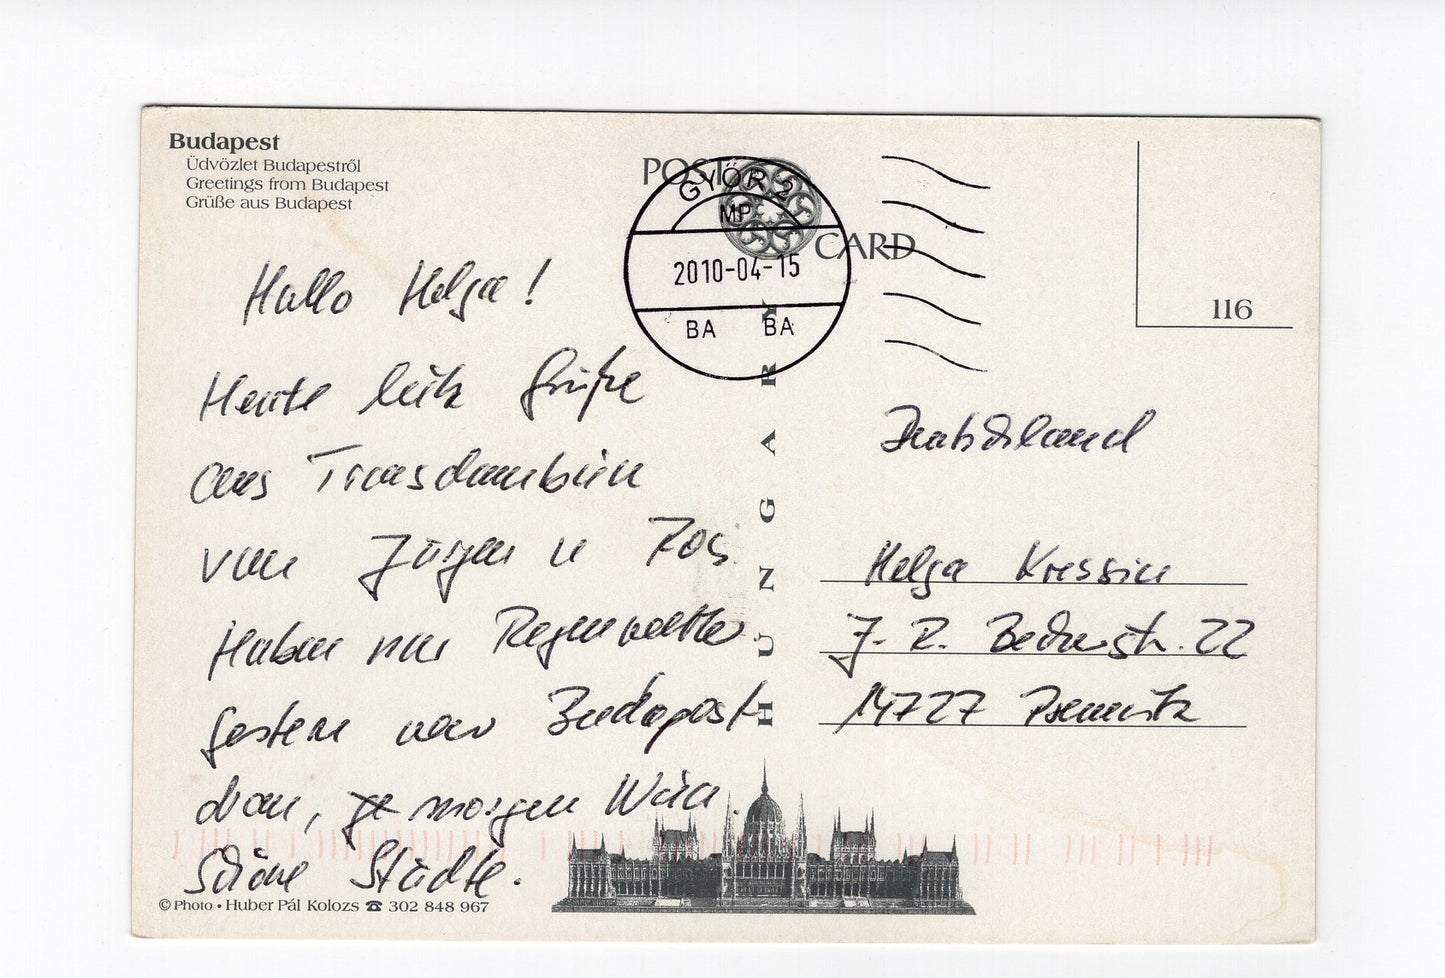 Budapest
Üdvözlet Budapestről
Greetings from Budapest
Grüße aus Budapest
POST
CARD
GYŐR 2
MP
2010-04-15
BA BA
116
HUNGARY
Hallo Helga!
Heute Grüße
aus Transdanubien
von Jürgen u Ros.
Haben nur Regenwetter
gestern war Budapest
dran, morgen Wien.
Schöne Städte.
Deutschland
Helga Kressin
J.-R. Becherstr. 22
14727 Premnitz
© Photo • Huber Pál Kolozs ☎ 302 848 967